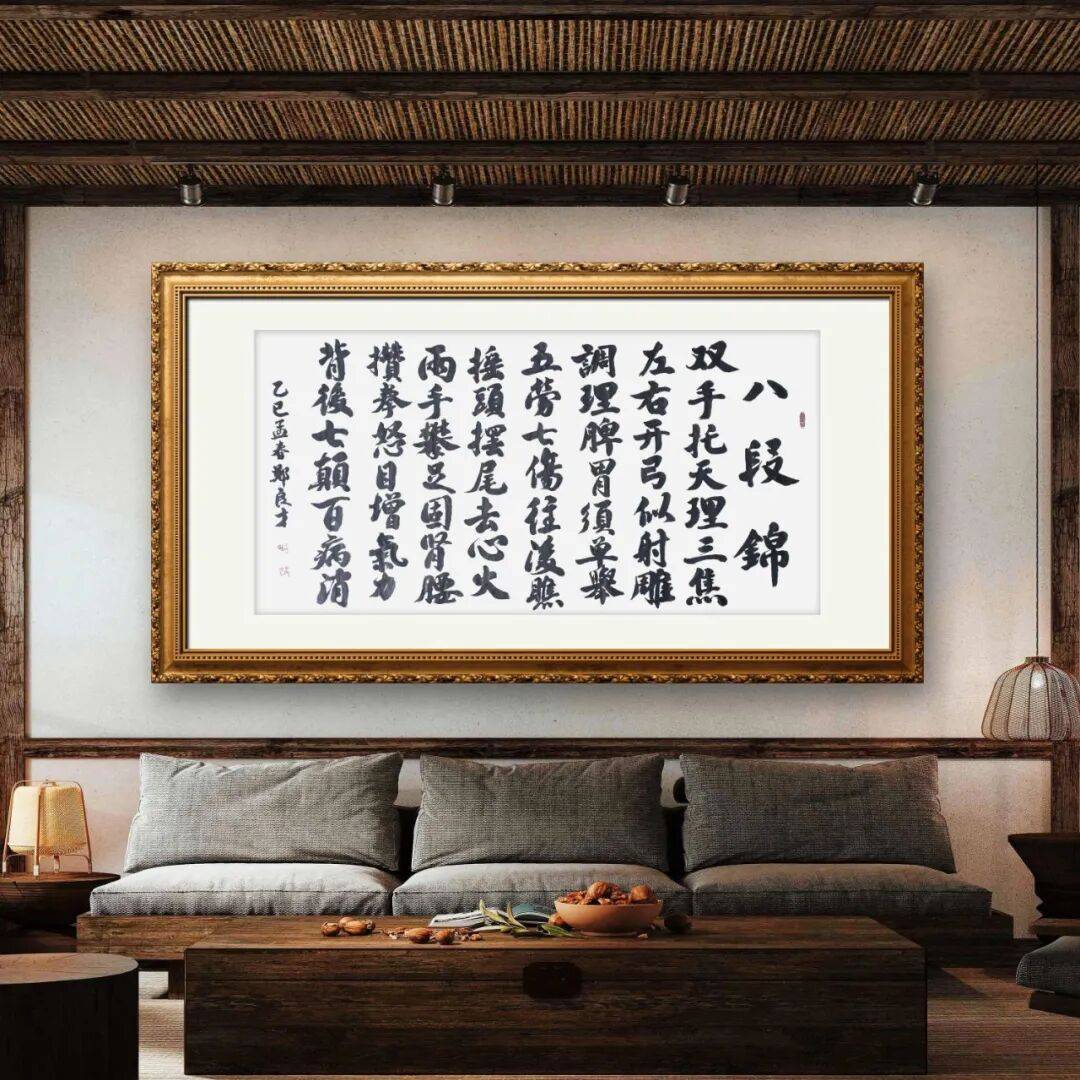 八段錦
双手托天理三焦
左右开弓似射雕
調理脾胃須单舉
五劳七傷往後瞧
摇頭摆尾去心火
兩手攀足固肾腰
攒拳怒目增氣力
背後七颠百病消
乙巳孟春鄭良才